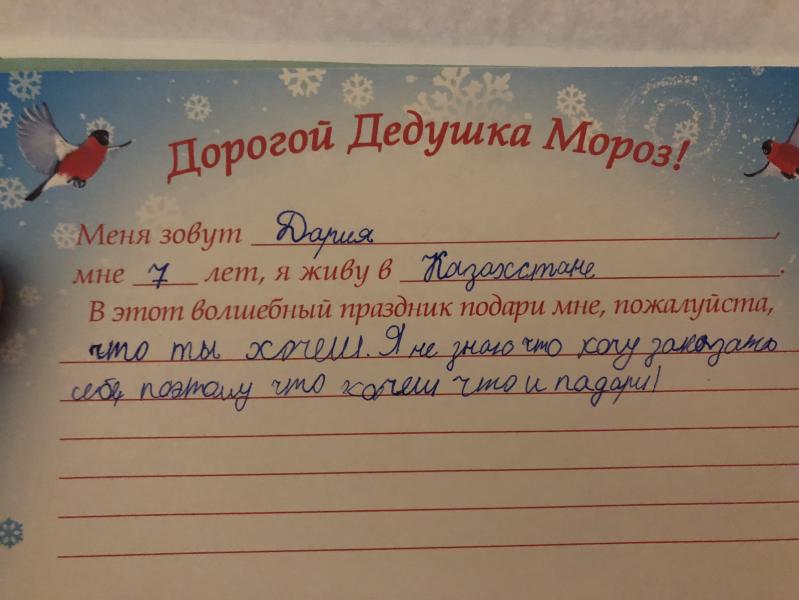 Дорогой Дедушка Мороз!
Меня зовут Дария,
мне 7 лет, я живу в Казахстане.
В этот волшебный праздник подари мне, пожалуйста,
что ты хочеш. Я не знаю что хочу заказать
себе поэтому что хочеш что и падари!